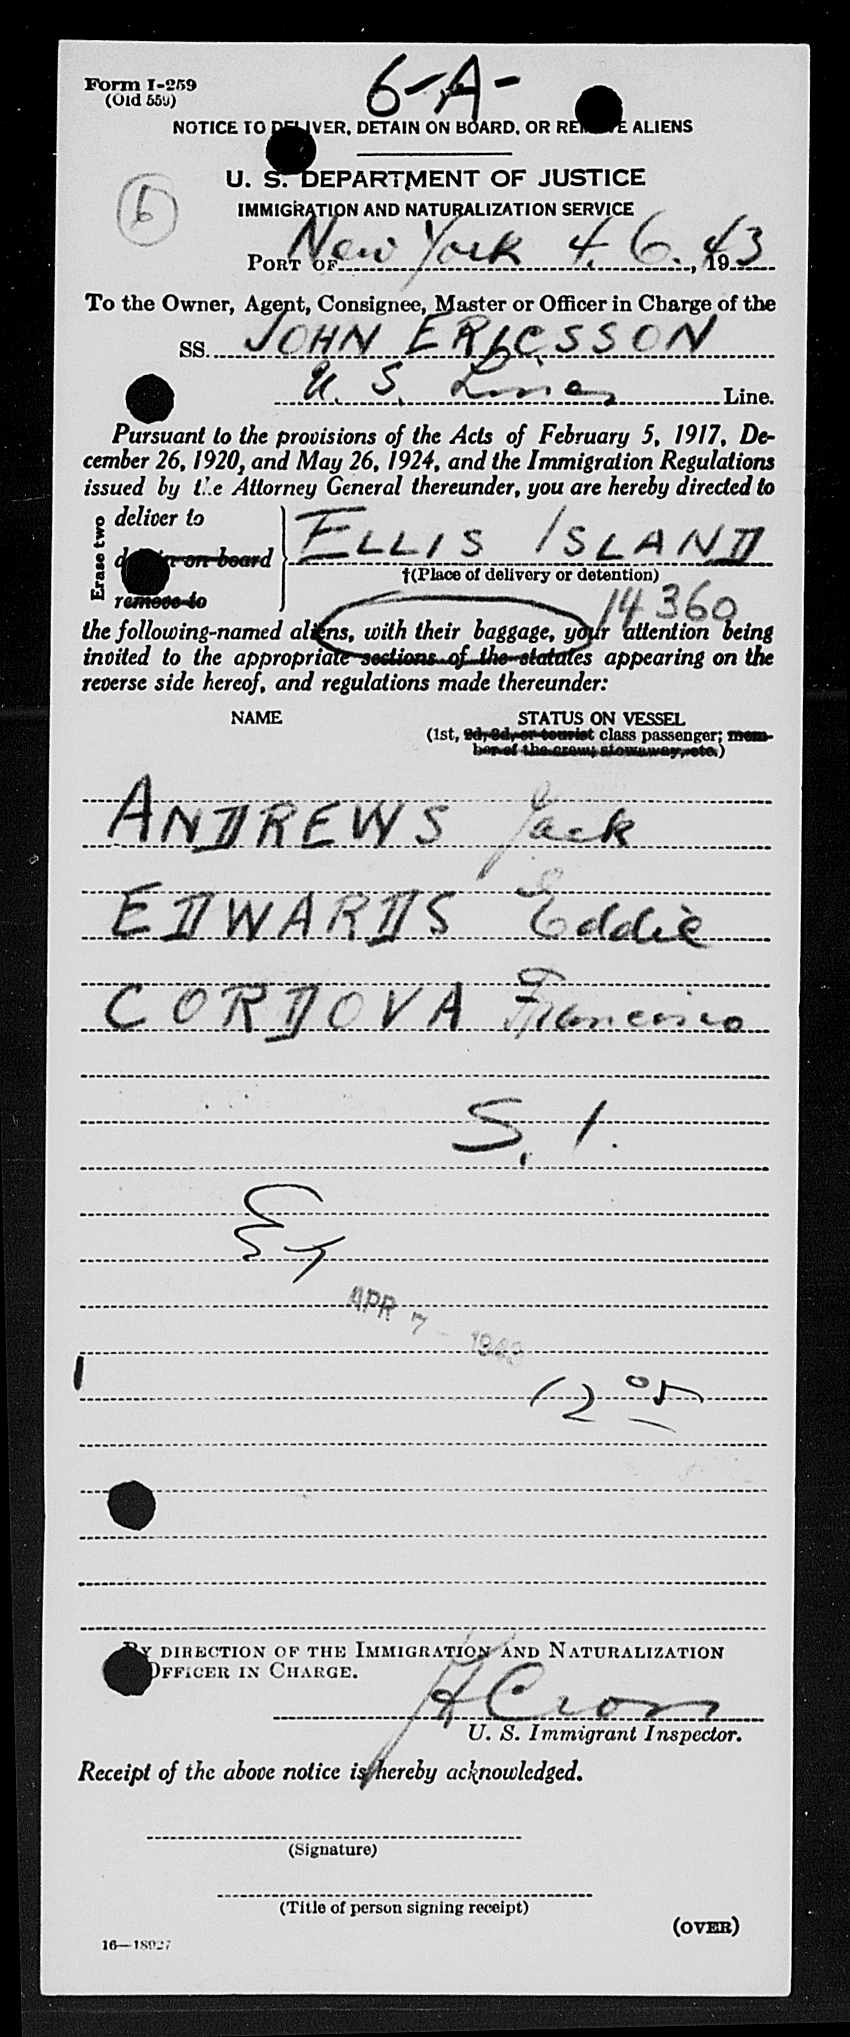 Form I-259
(Old 559)
6-A-
NOTICE TO DELIVER, DETAIN ON BOARD, OR REMOVE ALIENS
U. S. DEPARTMENT OF JUSTICE
IMMIGRATION AND NATURALIZATION SERVICE
6
PORT OF New York 4.6., 1943
To the Owner, Agent, Consignee, Master or Officer in Charge of the
SS. JOHN ERICSSON
U. S. Lines Line.
Pursuant to the provisions of the Acts of February 5, 1917, De-
cember 26, 1920, and May 26, 1924, and the Immigration Regulations
issued by the Attorney General thereunder, you are hereby directed to
Erase two
deliver to
detain on board
remove to
ELLIS ISLAND
†(Place of delivery or detention)
14360
the following-named aliens, with their baggage, your attention being
invited to the appropriate sections of the statutes appearing on the
reverse side hereof, and regulations made thereunder:
NAME STATUS ON VESSEL
(1st, 2d, 3d, or tourist class passenger; mem-
ber of the crew; stowaway, etc.)
ANDREWS Jack
EDWARDS Eddie
CORDOVA Francisco
S. I.
APR 7 - 1943
12 05
BY DIRECTION OF THE IMMIGRATION AND NATURALIZATION
OFFICER IN CHARGE.
U. S. Immigrant Inspector.
Receipt of the above notice is hereby acknowledged.
(Signature)
(Title of person signing receipt)
(OVER)
16—18927